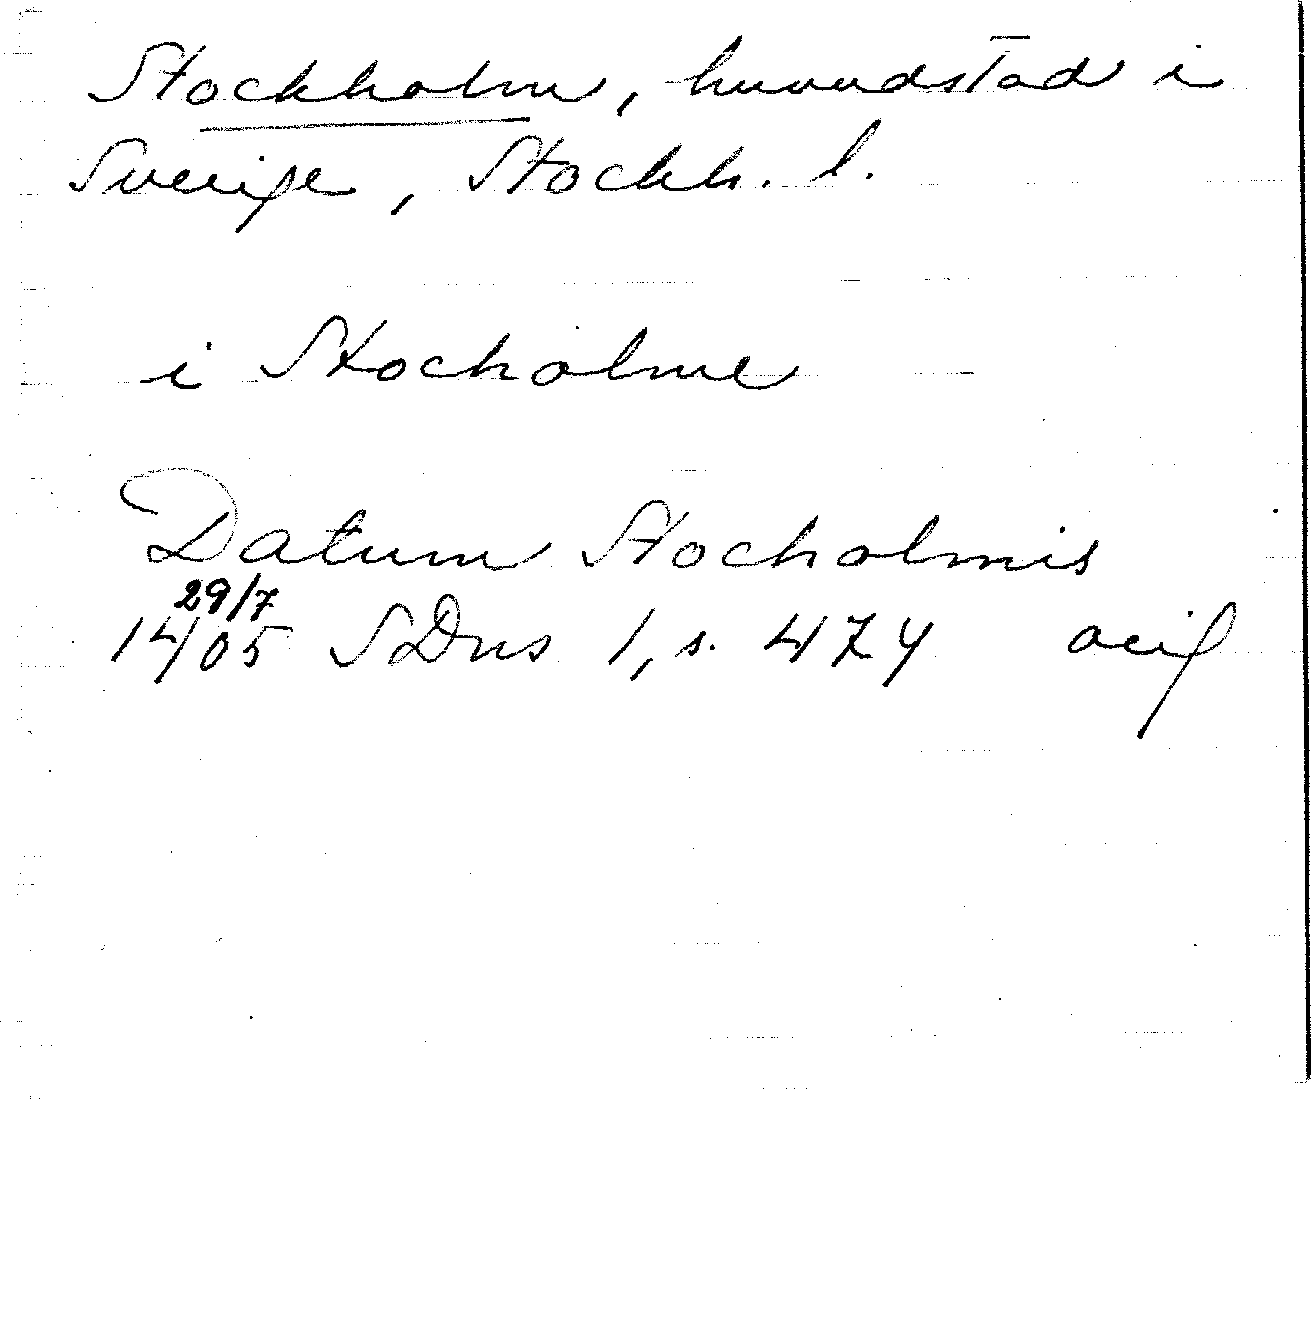 Stockholm, huvudstad i
Sverige, Stockh. l.
i Stocholme
Datum Stocholmis
29/7
1405 SDns 1, s. 474 orig